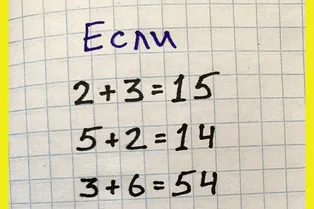 Если
2+3=15
5+2=14
3+6=54